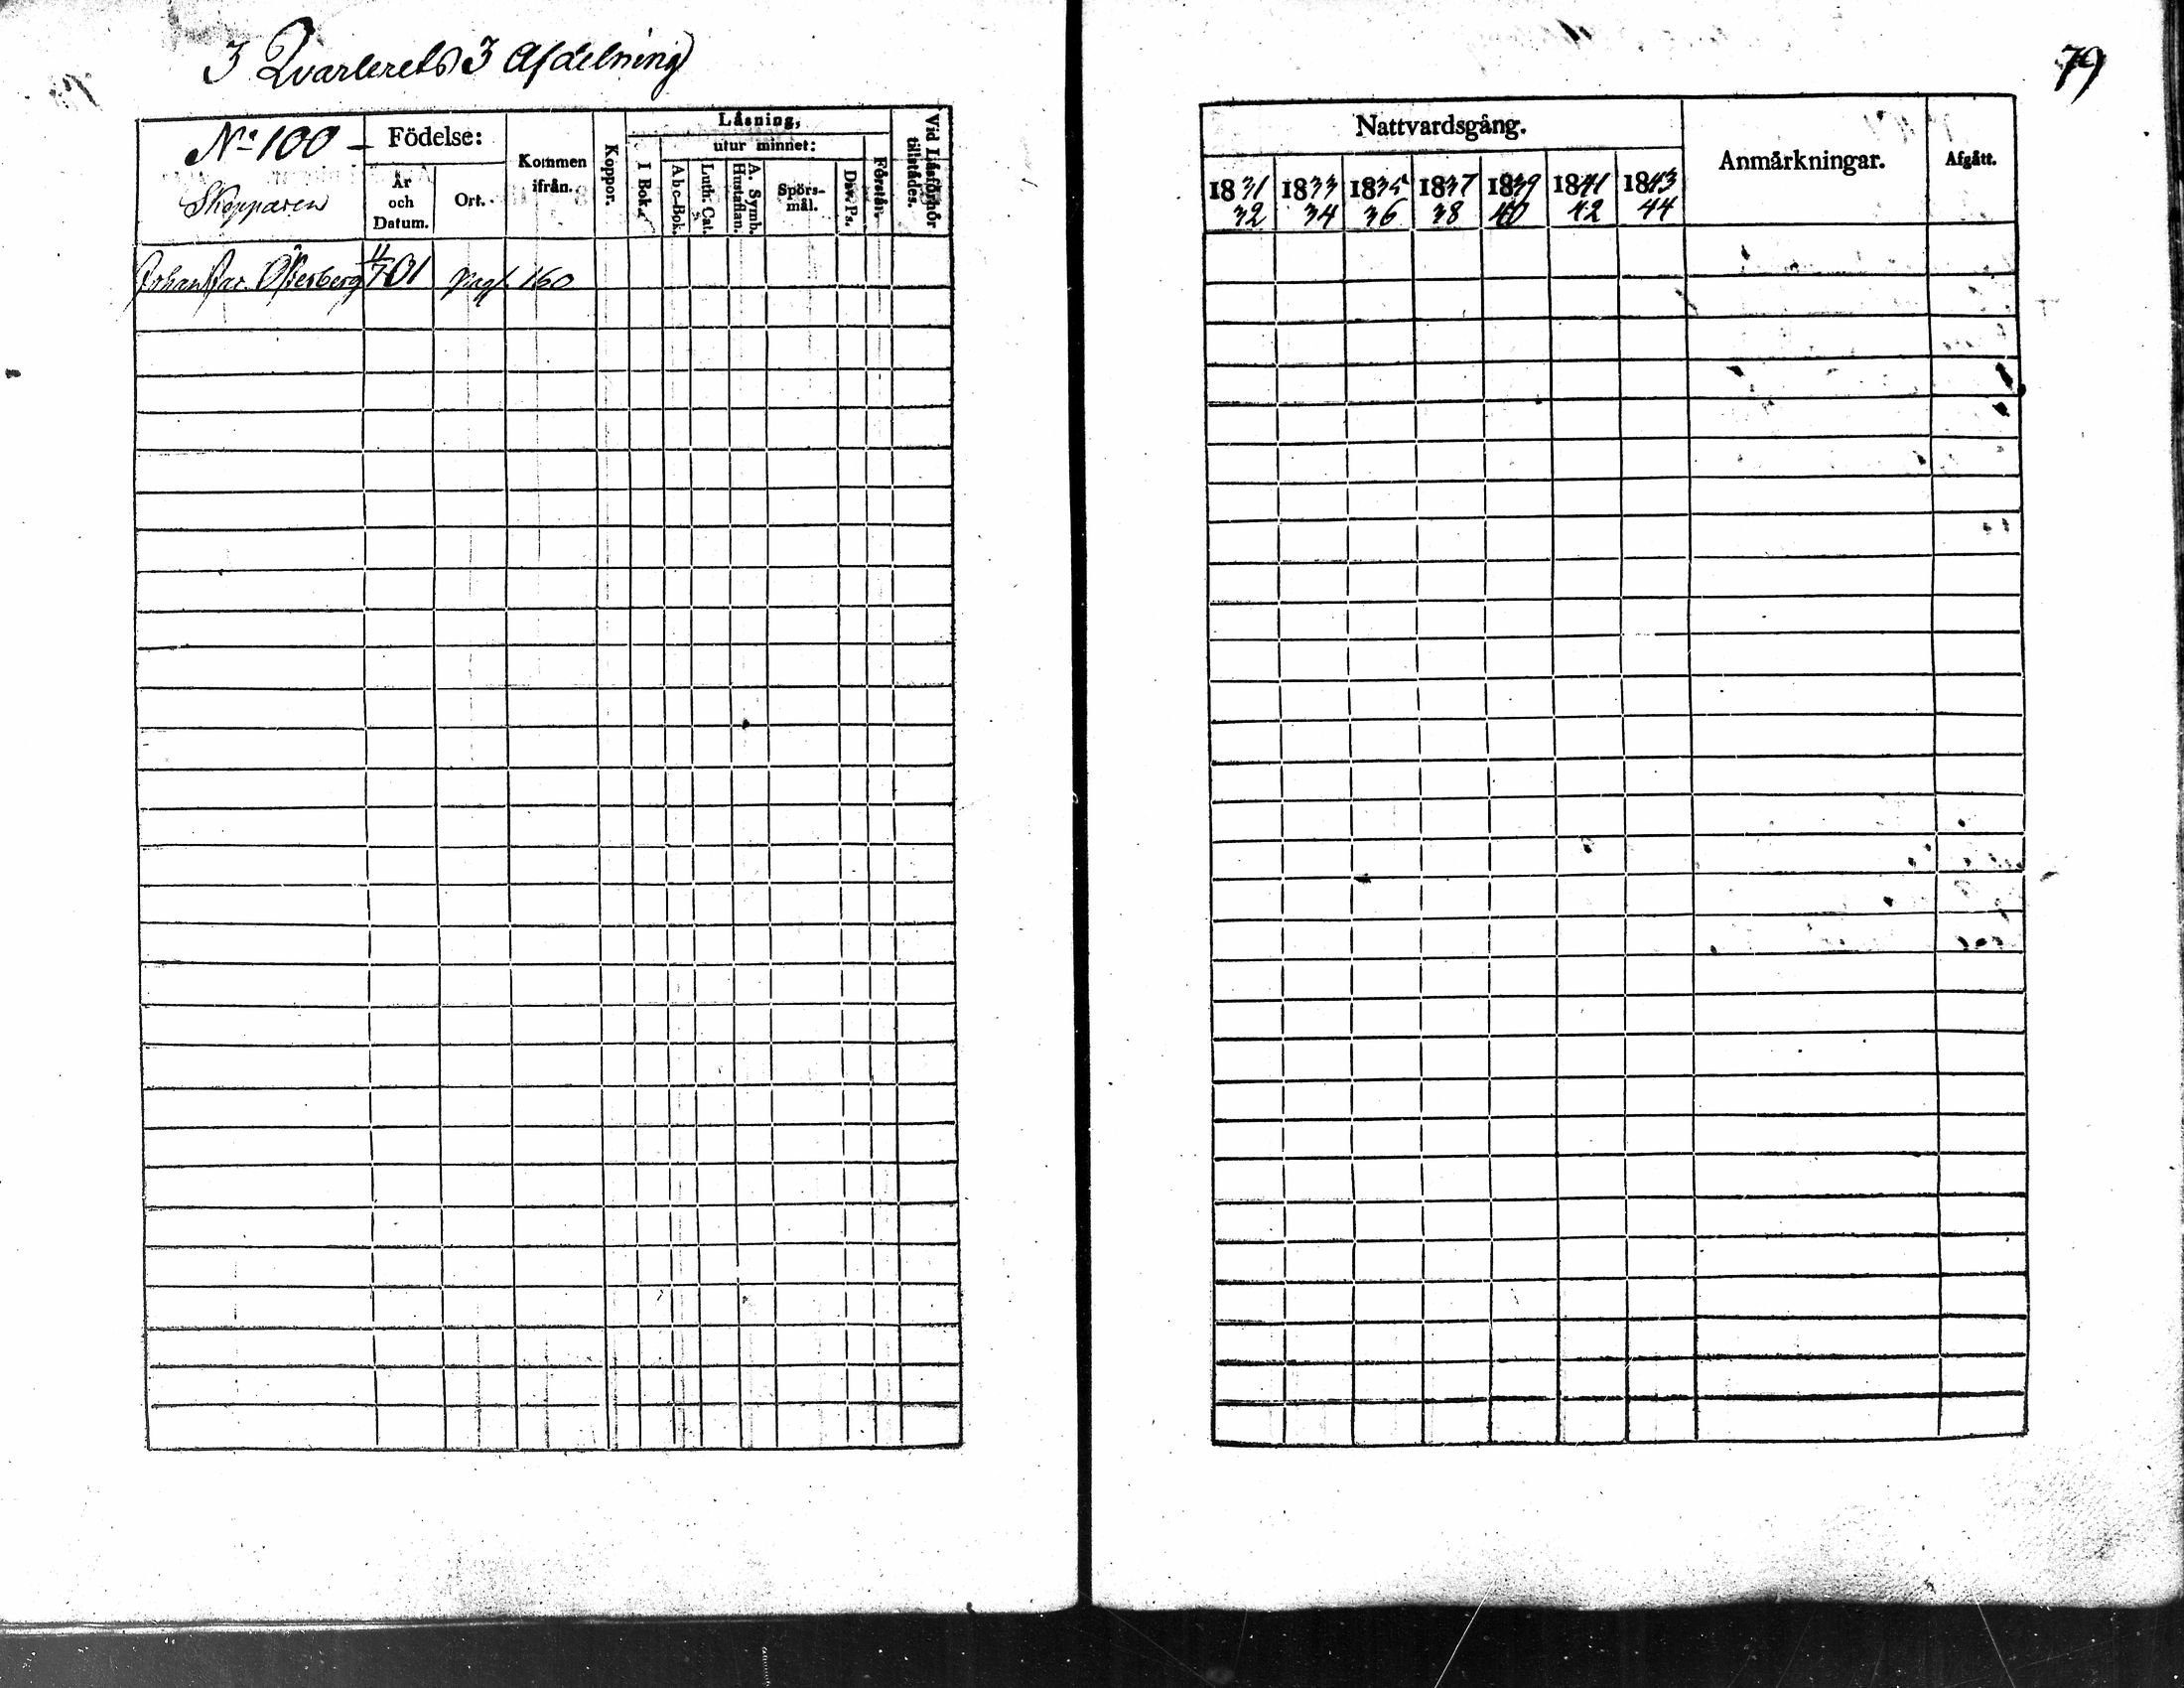 3 Qvarterets 3 Afdelning
79
No 100
Skepparen
Födelse:
År och Datum.
Ort.
Kommen ifrån.
Koppor.
Läsning,
I Bok.
utur minnet:
Abc-Bok.
Luth. Cat.
A. Symb. Hustaflan.
Spörs-mål.
Dav. Ps.
Förstån.
Vid Läsförhör tillstädes.
Johan Jac. Österberg 11/7 01 pag. 160
Nattvardsgång.
1831 32
1833 34
1835 36
1837 38
1839 40
1841 42
1843 44
Anmärkningar.
Afgått.